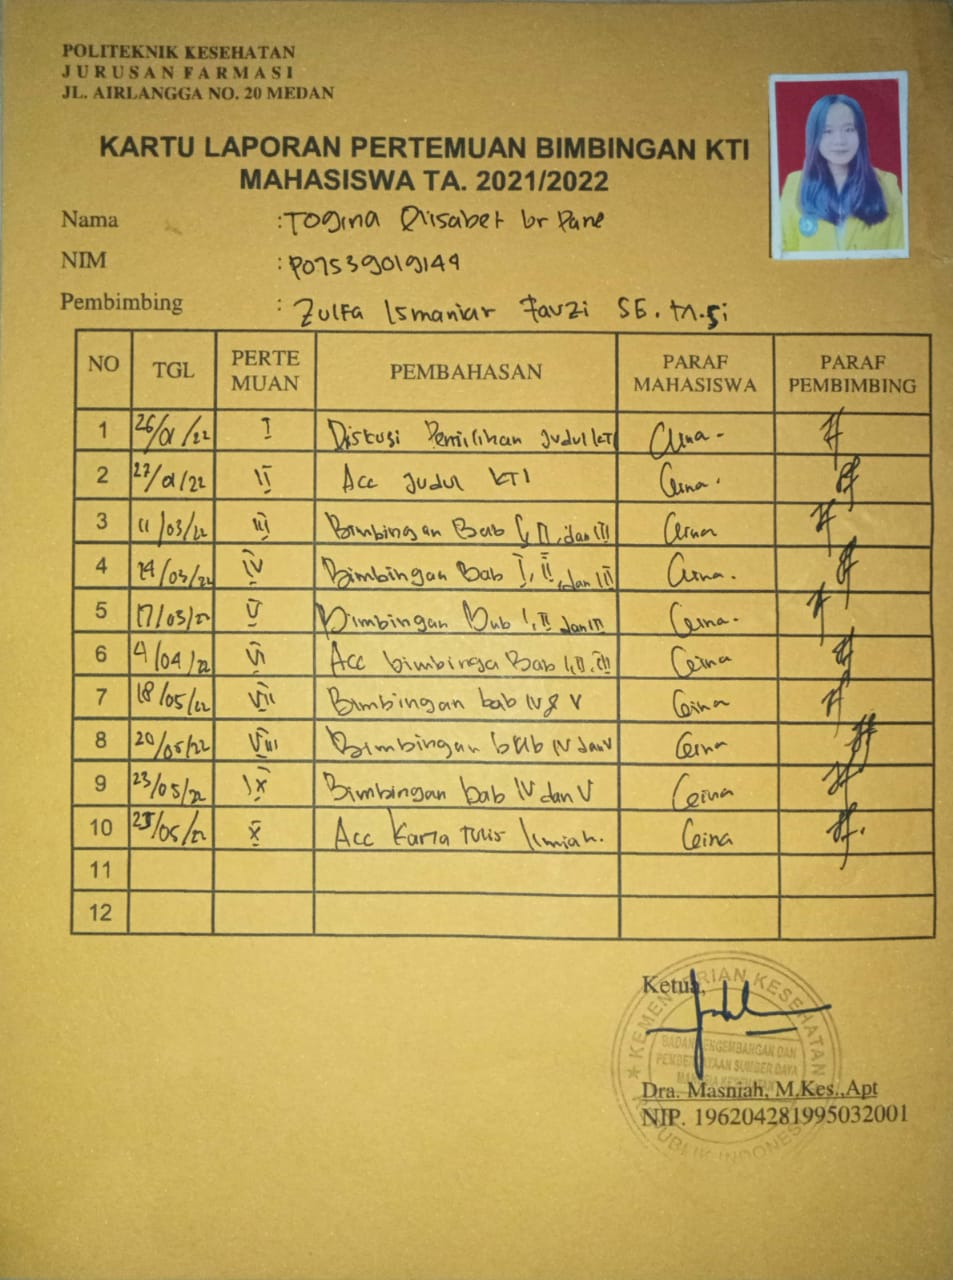 POLITEKNIK KESEHATAN
JURUSAN FARMASI
JL. AIRLANGGA NO. 20 MEDAN
KARTU LAPORAN PERTEMUAN BIMBINGAN KTI
MAHASISWA TA. 2021/2022
Nama : Togina Elisabet br Pane
NIM : P07539019149
Pembimbing : Zulfa Ismaniar Fauzi SE. M.Si
NO TGL PERTE MUAN PEMBAHASAN PARAF MAHASISWA PARAF PEMBIMBING
1 26/01/22 I Diskusi Pemilihan Judul KTI
2 27/01/22 II Acc Judul KTI
3 11/03/22 III Bimbingan Bab I, II, dan III
4 14/03/22 IV Bimbingan Bab I, II, dan III
5 17/03/22 V Bimbingan Bab I, II dan III
6 4/04/22 VI Acc bimbinga Bab I, II, III
7 18/05/22 VII Bimbingan bab IV & V
8 20/05/22 VIII Bimbingan bab IV dan V
9 23/05/22 IX Bimbingan bab IV dan V
10 25/05/22 X Acc Karya Tulis Ilmiah.
11
12
Ketua,
KEMENTERIAN KESEHATAN
BADAN PENGEMBANGAN DAN
PEMBERDAYAAN SUMBER DAYA
MANUSIA KESEHATAN
REPUBLIK INDONESIA
Dra. Masniah, M.Kes.,Apt
NIP. 196204281995032001